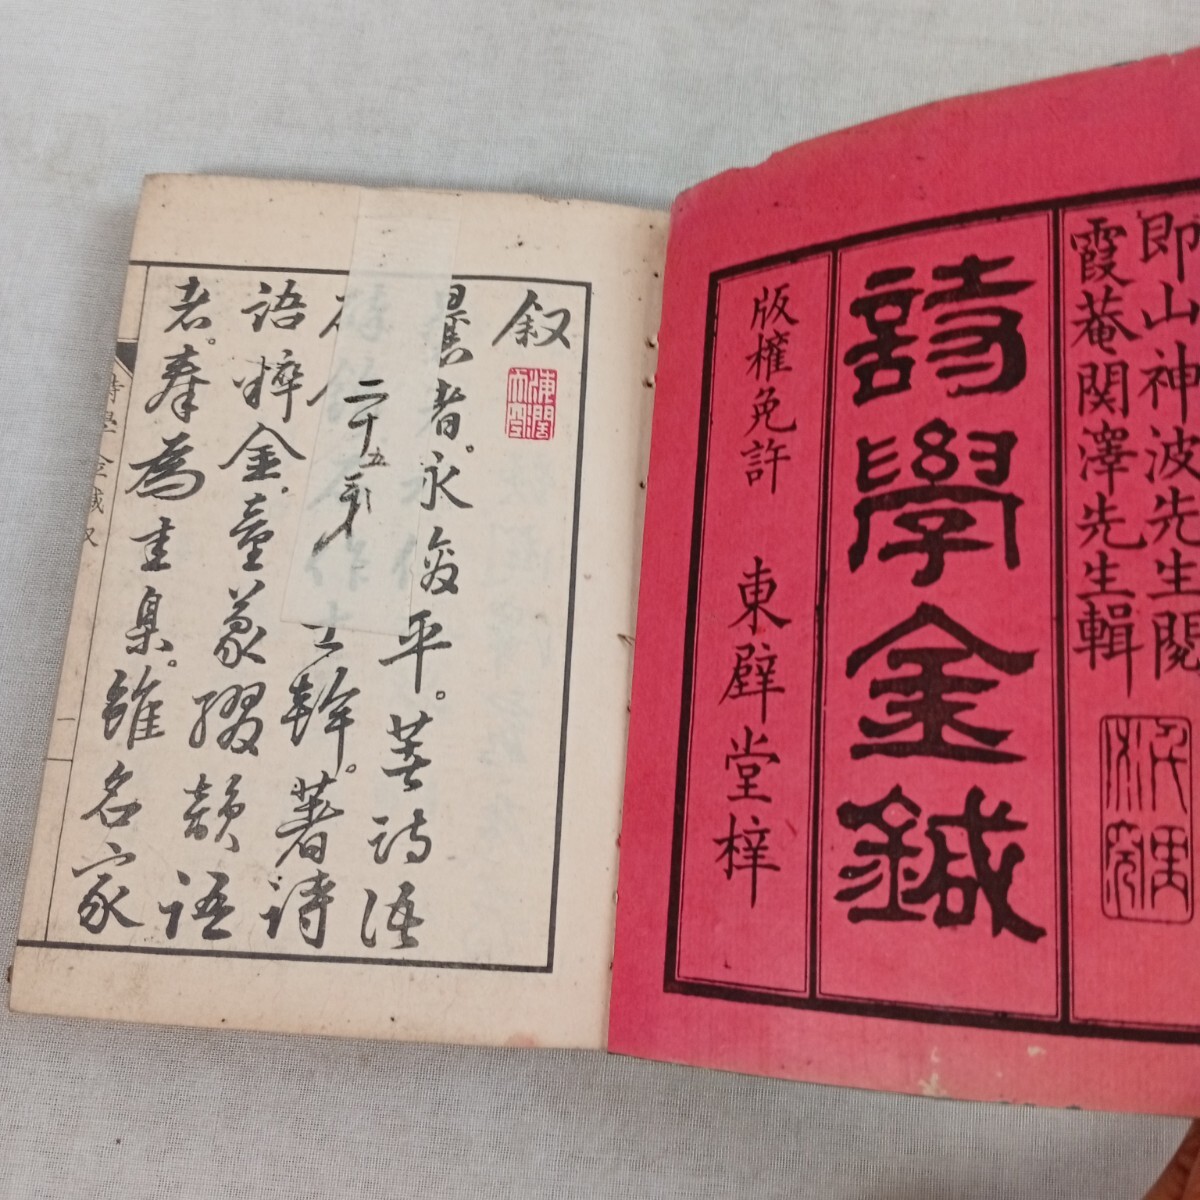 即山神波先生閲
霞菴関澤先生輯
詩學金鍼
版権免許 東壁堂梓
叙
曩者。永俊平。著詩語
二十五
士幹。著詩
語粹金。童蒙綴韻語
者。奉為圭臬。雖名家
詩學金鍼叙
一